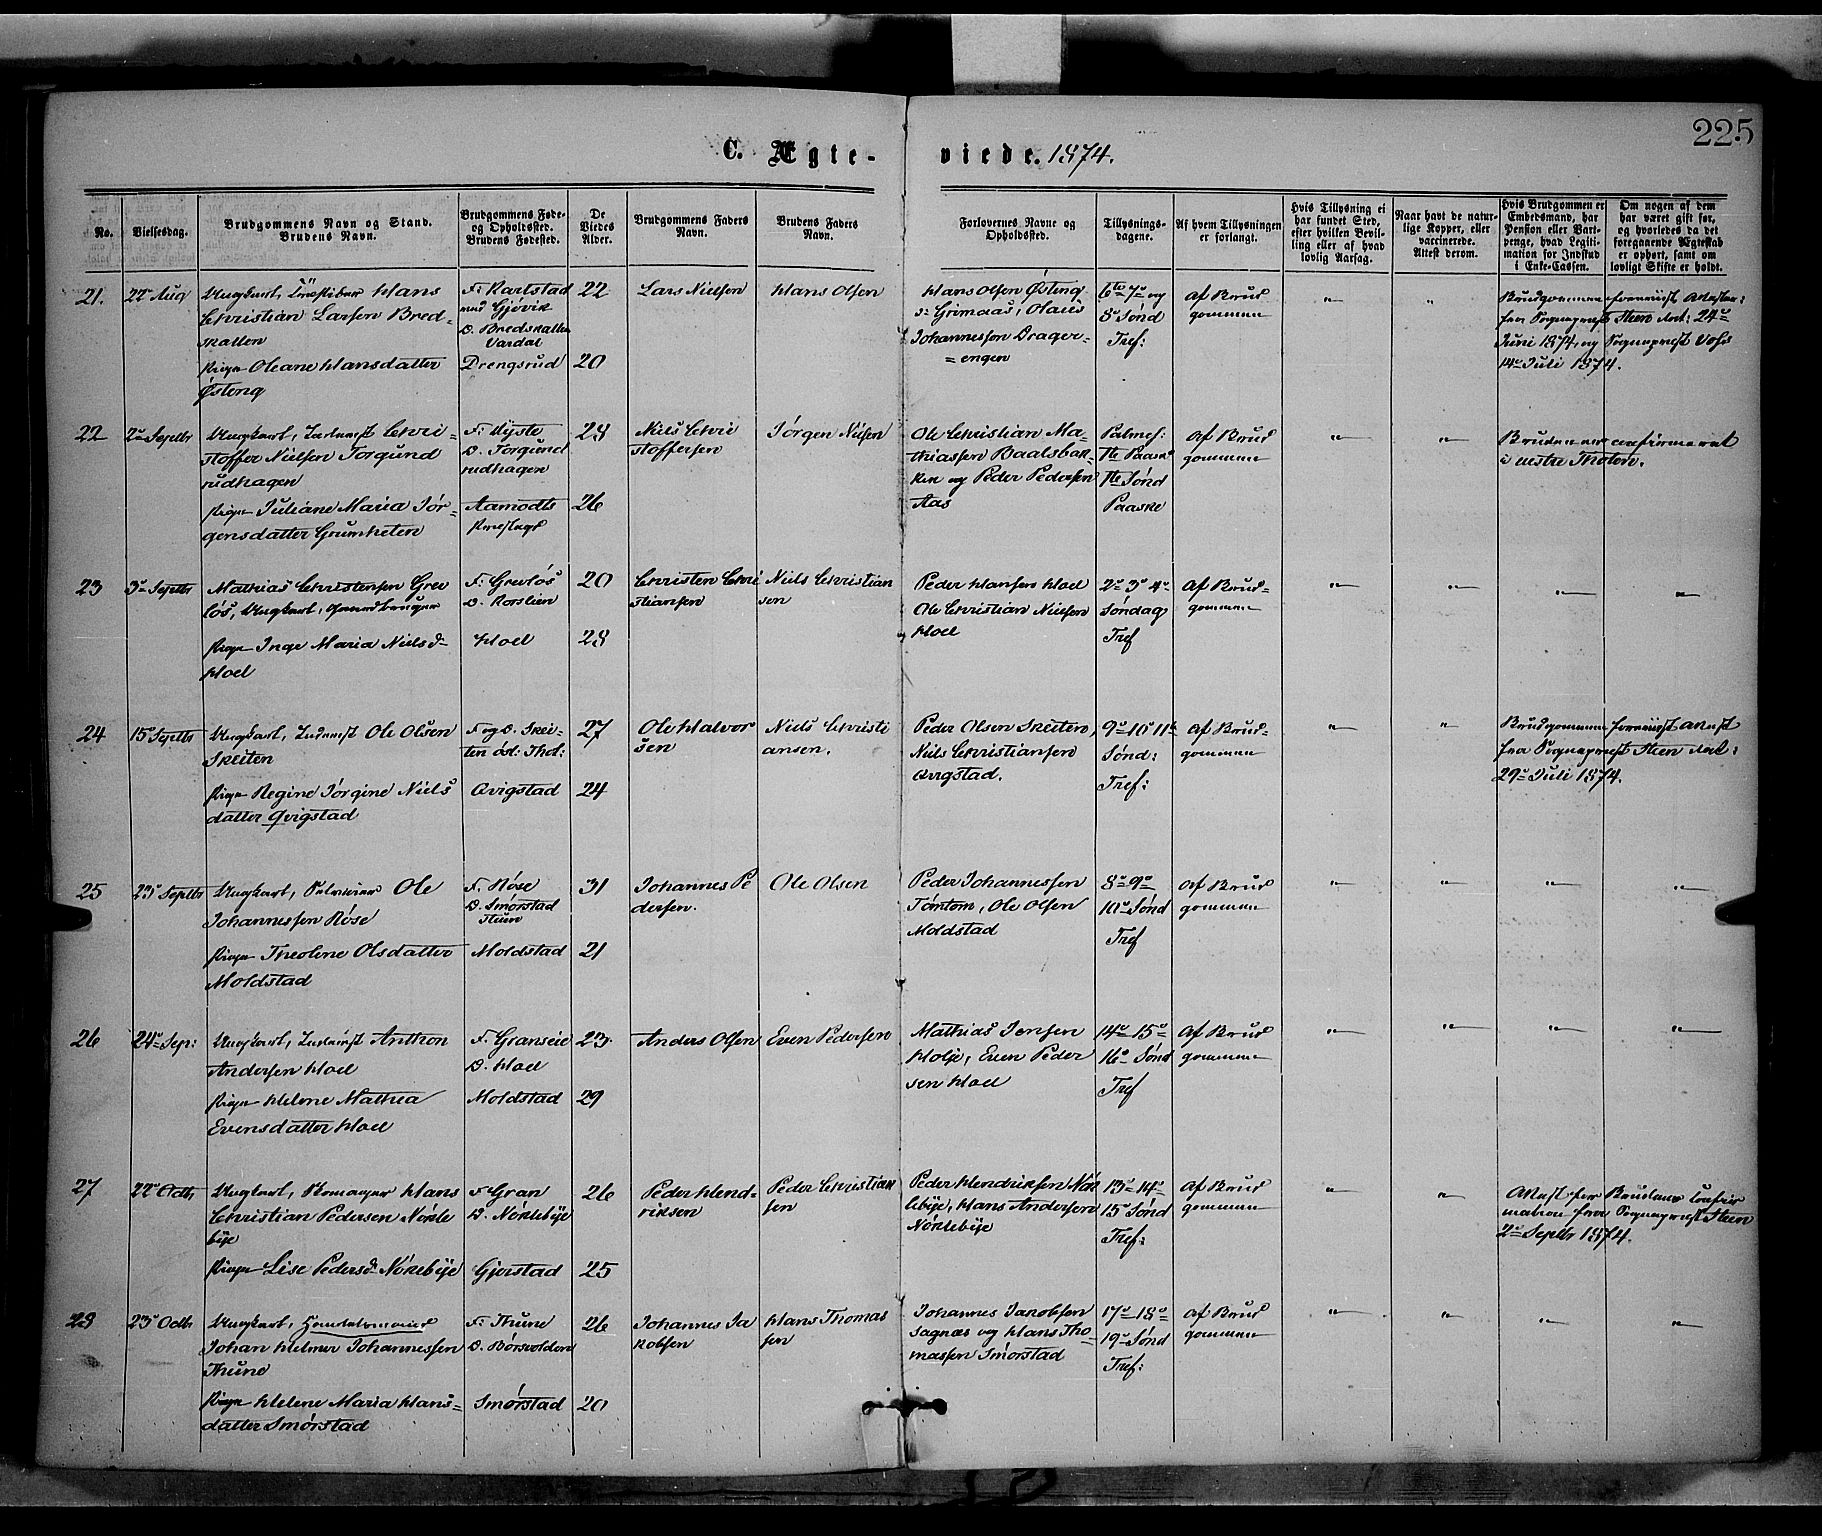 225
C. Ægte- viede. 1874.
No.
Vielsesdag.
Brudgommens Navn og Stand.
Brudens Navn.
Brudgommens Føde-
og Opholdssted.
Brudens Fødested.
De
Viedes
Alder.
Brudgommens Faders
Navn.
Brudens Faders
Navn.
Forlovernes Navne og
Opholdssted.
Tillysnings-
dagene.
Af hvem Tillysningen
er forlangt.
Hvis Tillysning ei
har fundet Sted,
efter hvilken Bevil-
ling eller af hvad
lovlig Aarsag.
Naar havt de natur-
lige Kopper, eller
vaccinerede.
Attest derom.
Hvis Brudgommen er
Embedsmand, har
Pension eller Vart-
penge, hvad Legiti-
mation for Indskud
i Enke-Cassen.
Om nogen af dem
har været gift før,
og hvorledes da det
foregaaende Ægteskab
er ophørt, samt om
lovligt Skifte er holdt.
21.
22 Aug
Ungkarl, Træskibær Hans
Christian Larsen Bred-
skallen
Pige Oleane Hansdatter
Østeng
F: Karlstad
ved Gjøvik
O. Bredskallen
Vardal
Drengsrud
22
20
Lars Nielsen
Hans Olsen
Hans Olsen Østeng
Grimaas, Olaus
Johannessen Drager-
=engen
6te 7de og
8de Sønd
Tref:
Af Brud
gommen
Brudgommen foreviist Attester
fra Sognepræst Steen dat: 24de
Juni 1874, og Sognepræst
14de Juli 1874.
22
2den Septbr
Ungkarl, Inderst Chri-
stoffer Nielsen Torgund
rudhagen
Pige Juliane Maria Jør-
gensdatter Grumheten
F: Nyste
O. Torgund
rudhagen
Aamodts
28
26
Niels Chri
stoffersen
Jørgen Nielsen
Ole Christian Ma-
thiassen Baalsbak-
ken og Peder Pedersen
Aas
Palmes:
1te Paaske
1te Sønd
Paaske
Af Brud
gommen
Bruden er confirmeret
i vestre Thoten.
23
3de Septbr
Mathias Christensen Grev
løs, Ungkarl, Gaardbruger
Pige Inge Maria Nielsd-
Hoel
F: Grevløs
O. Korslien
Hoel
20
28
Christen Chri
stiansen
Niels Christian
sen
Peder Hansen Hoel
Ole Christian Nielsen
Hoel
2de 3de 4de
Søndag
Tref
Af Brud-
gommen
24
15de Septbr
Ungkarl, Inderst Ole Olsen
Skeiten
Pige Regine Jørgine Niels
datter Qvigstad
F. og O. Skei-
ten Ød. Thot:
Qvigstad
27
24
Ole Halvor
sen
Niels Christi
ansen.
Peder Olsen Skeiten,
Niels Christiansen
Qvigstad.
9de 10de 11te
Sønd:
Tref:
Af Brud-
gommen
Brudgommen foreviist Attest
fra Sognepræst Steen dat:
29de Juli 1874.
25
23de Septbr
Ungkarl, Ole
Johannessen Røse
Pige Theoline Olsdatter
Moldstad
F. Røse
O. Smørstad
Moldstad
31
21
Johannes Pe
dersen.
Ole Olsen
Peder Johannessen
Tømtom, Ole Olsen
Moldstad
8de 9de
10de Sønd
Tref
Af Brud
gommen
26
24de Sep:
Ungkarl, Inderst Anthon
Andersen Hoel
Pige Helene Mathea
Evensdatter Hoel
F. Granseie
O. Hoel
Moldstad
23.
29
Anders Olsen
Even Pedersen
Mathias Jensen
Holje, Even Peder
sen Hoel
14de 15de
16de Sønd
Tref
Af Brud
gommen
27
22de Octb
Ungkarl, Skomager Hans
Christian Pedersen Nøkle
bye
Pige Lise Pedersd Nøklebye
F. Gran
O. Nøklebye
Gjørstad
26
25
Peder Hend-
riksen
Peder Christian
sen
Peder Hendriksen Nøk
lebye, Hans Andersen
Nøklebye
13de 14de
15de Sønd
Tref:
Af Brud
gommen
Attest for Brudens Confir
mation fra Sognepræst Steen
2den Septbr 1874.
28
23de Octb
Ungkarl, Handelsmand
Johan Helmer Johannessen
Thune
Pige Helene Maria Hans-
datter Smørstad
F. Thune
O. Børsvolden
Smørstad
26
20
Johannes Ja
kobsen
Hans Thomas
sen
Johannes Jacobsen
Sagnæs og Hans Tho-
massen Smørstad
17de 18de
19de Sønd
Tref:
Af Brud
gommen